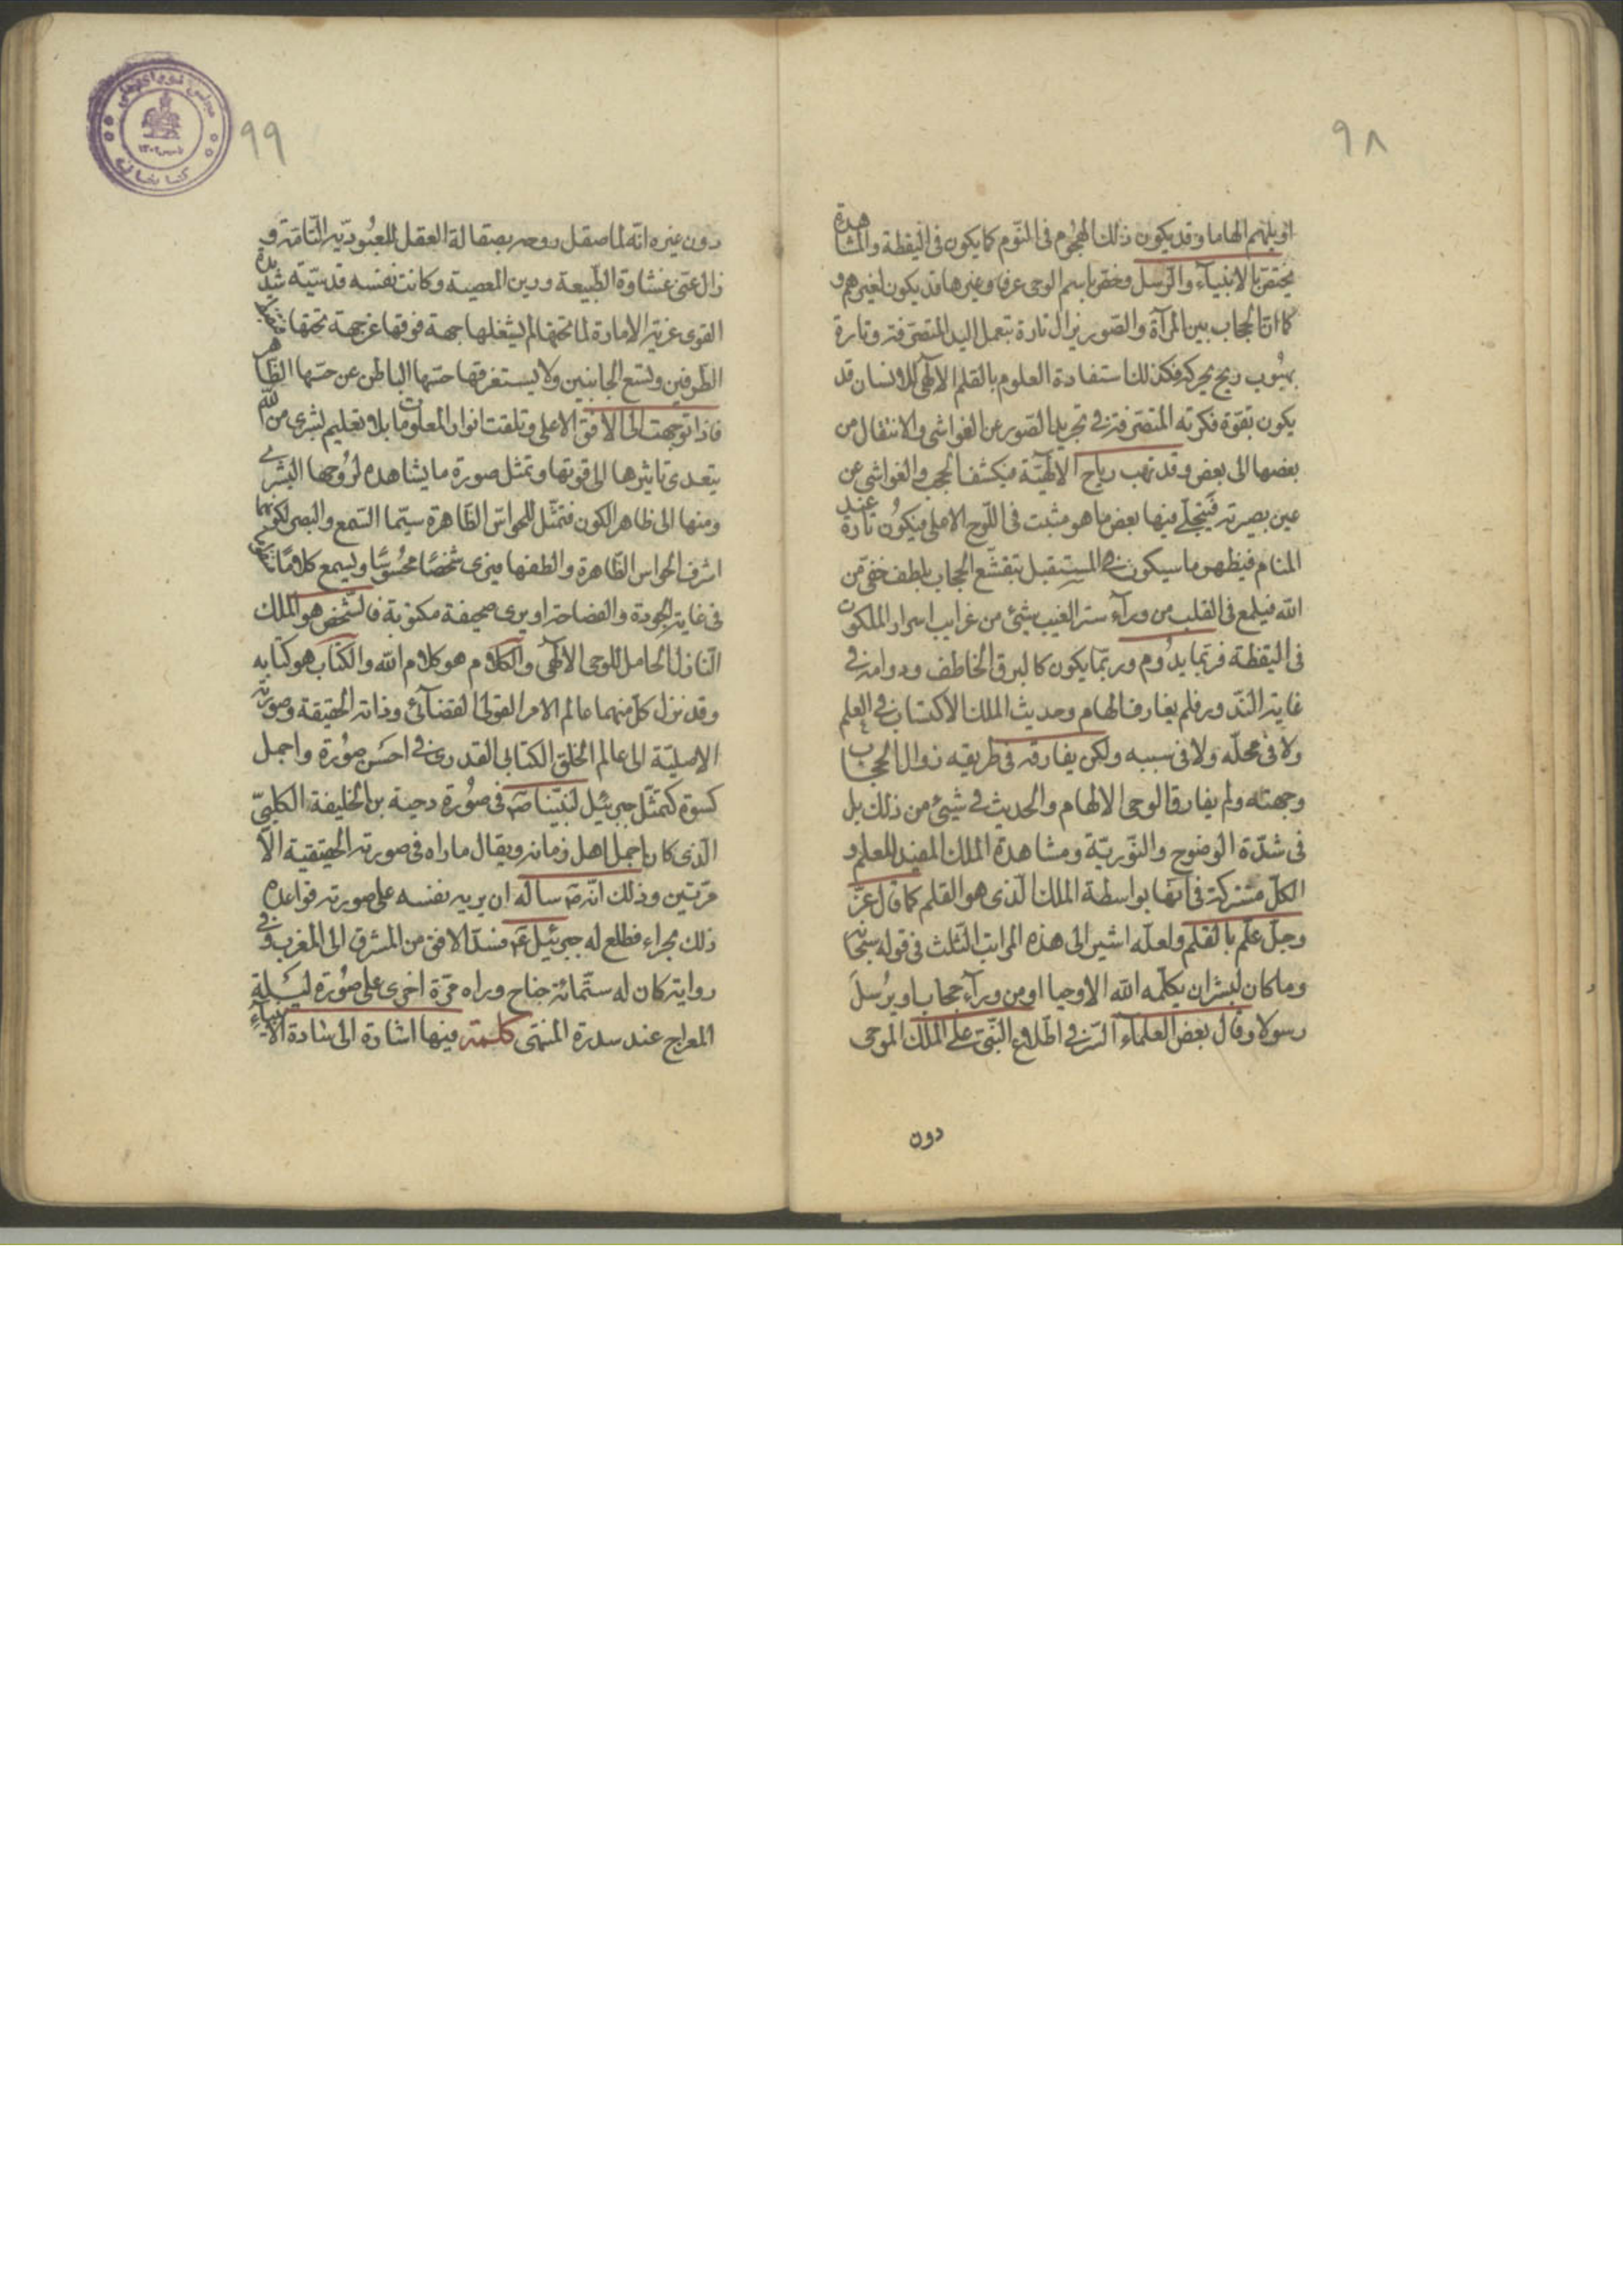 ٩٨
او يلهم الهاما وقد يكون ذلك الهجوم فى النوم كما يكون فى اليقظة والمشاهدة
يختص بالانبياء والرسل وخص باسم الوحى عرفا وغيرها قد يكون لغيرهم و
كما ان الحجاب بين المرآة والصور يزال تارة بتعمل اليد المتصرفة وتارة
بهبوب ريح يحركه فكذلك استفادة العلوم بالقلم الالهى للانسان قد
يكون بقوة فكرته المتصرفة فى تجريد الصور عن الغواشى والانتقال من
بعضها الى بعض وقد تهب رياح الالهية فيكشف الحجب والغواشى عن
عين بصيرته فينجلى فيها بعض ما هو مثبت فى اللوح الاعلى فيكون تارة عند
المنام فيظهر ما سيكون فى المستقبل بتقشع الحجاب بلطف خفى من
الله فيلمع فى القلب من وراء ستر الغيب شيئ من غرايب اسرار الملكوت
فى اليقظة فربما يدوم وربما يكون كالبرق الخاطف ودوامه فى
غاية الندور فلم يفارق الهام وحديث الملك الاكتساب فى العلم
ولا فى محله ولا فى سببه ولكن يفارقه فى طريقه زوال الحجاب
وجهته ولم يفارق الوحى الالهام والحديث فى شيئ من ذلك بل
فى شدة الوضوح والنورية ومشاهدة الملك المفيد للعلم و
الكل مشتركة فى انها بواسطة الملك الذى هو القلم كما قال عز
وجل علم بالقلم ولعله اشير الى هذه المراتب الثلث فى قوله سبحانه
وما كان لبشر ان يكلمه الله الا وحيا او من وراء حجاب او يرسل
رسولا وقال بعض العلماء السر فى اطلاع النبى على الملك الموحى
دون
٩٩
دون غيره انه لما صقل روحه بصقالة العقل للعبودية التامة و
زال عنه غشاوة الطبيعة ورين المعصية وكانت نفسه قدسية شديدة
القوى عزية الامارة لما تحتها لم يشغلها جهة فوقها عن جهة تحتها
الطرفين وتسع الجانبين ولا يستغرقها حسها الباطن عن حسها الظاهر
فاذا توجهت الى الافق الاعلى وتلقت انوار المعلومات بلا تعليم بشرى من الله
يتعدى تاثيرها الى قوتها وتمثل صورة ما يشاهده لروحها البشرى
ومنها الى ظاهر الكون فتمثل للحواس الظاهرة سيما السمع والبصر لكونهما
اشرف الحواس الظاهرة والطفها فيرى شخصا محسوسا ويسمع كلاما
فى غاية الجودة والفصاحة او يرى صحيفة مكتوبة فالشخص هو الملك
النازل الحامل للوحى الالهى والكلام هو كلام الله والكتاب هو كتابه
وقد نزل كل منهما عالم الامر القولى القضائى وذاته الحقيقة وصورته
الاصلية الى عالم الخلق الكتابى القدرى فى احسن صورة واجمل
كسوة كتمثل جبرئيل لنبينا ص فى صورة دحية بن الخليفة الكلبى
الذى كان اجمل اهل زمانه ويقال ماراه فى صورته الحقيقية الا
مرتين وذلك انه ص ساله ان يريه نفسه على صورته فواعده
ذلك بحراء فطلع له جبرئيل ع فسد الافق من المشرق الى المغرب وفى
رواية كان له ستمائة جناح وراه مرة اخرى على صورته ليلة
المعراج عند سدرة المنتهى كلمة فيها اشارة الى شادة الانبياء
مجلس شوراى ملى
كتابخانه